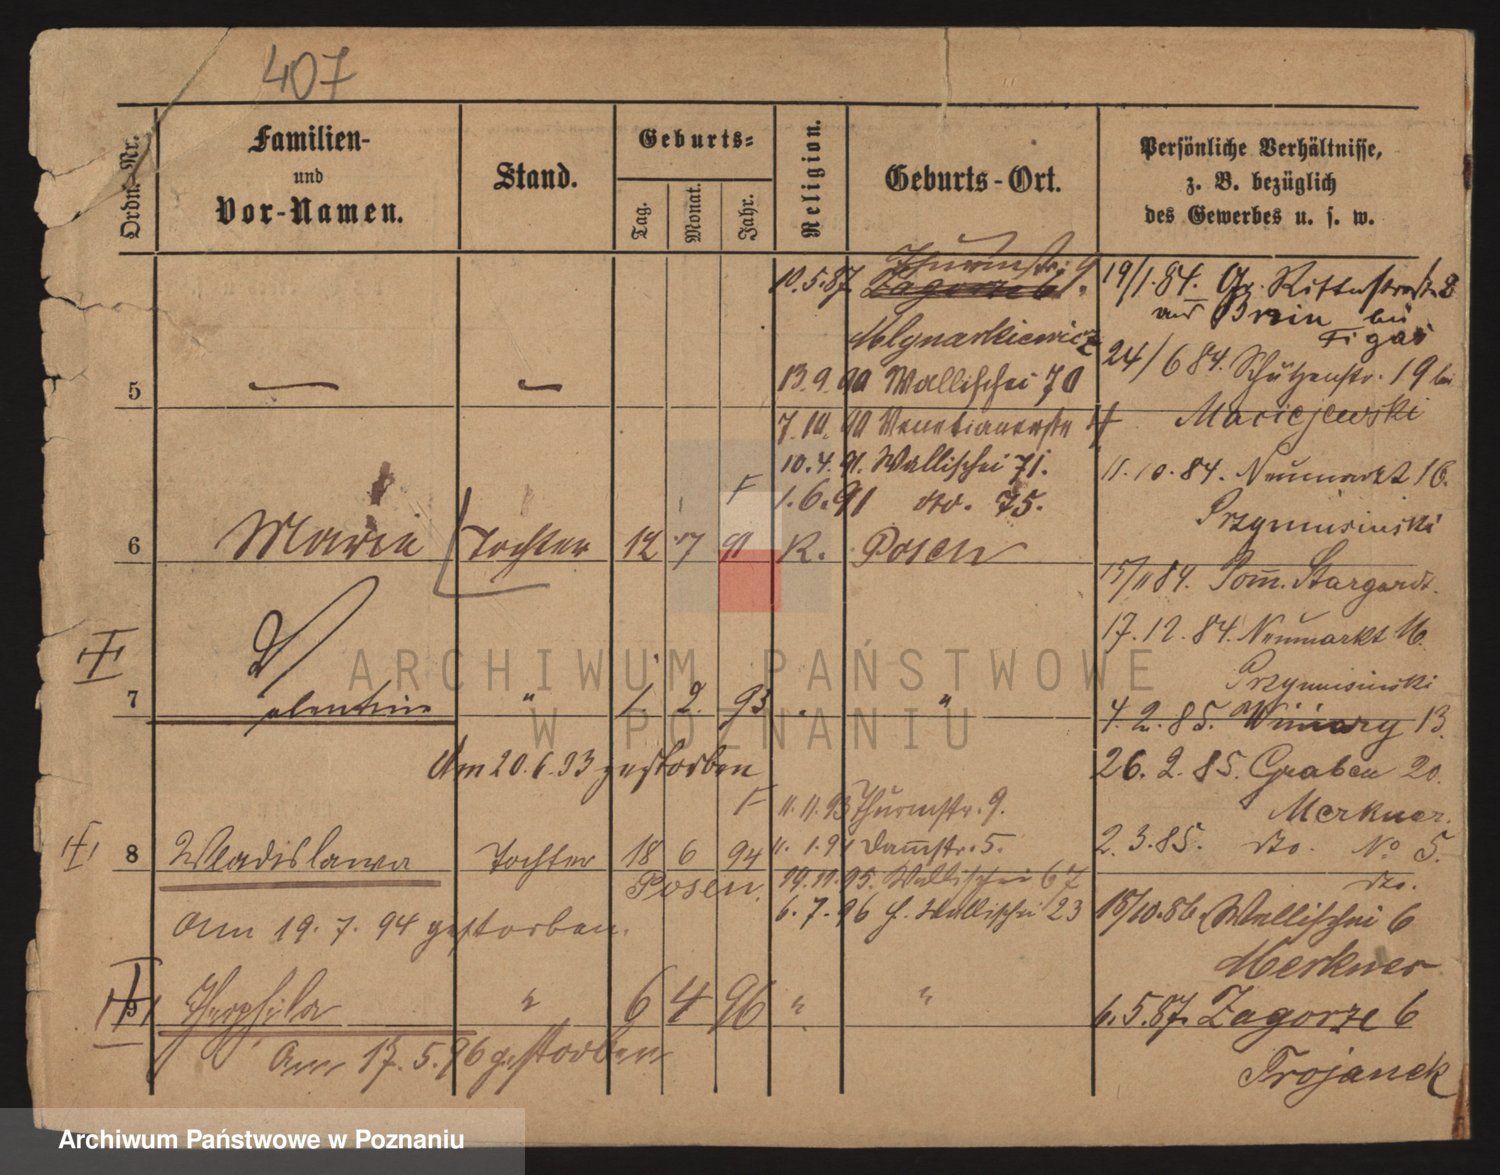 407
Ordn.-Nr.
Familien-
und
Vor-Namen.
Stand.
Geburts-
Tag.
Monat.
Jahr.
Religion.
Geburts-Ort.
Persönliche Verhältnisse,
z. B. bezüglich
des Gewerbes u. s. w.
Thurmstr. 9
10.5.87. Zagorze 6
Mlynarkiewicz
5 — —
13.9.90 Wallischei 70
7.10.90 Venetianerstr
10.4.91. Wallischei 71.
1.6.91 dto. 75.
6 Marie Tochter 12 7 91 K. Posen
7 Valentine " 1. 2. 93 "
Am 20.6.93 gestorben
11.11.93 Thurmstr. 9.
8 Wladislawa Tochter 18 6 94
Dammstr. 5.
Posen
29.11.95. Wallischei 67
6.7.96 Wallischei 23
Am 19.7.94 gestorben.
9 " 6 4 96 " "
Am 17.5.96 gestorben
19/1.84. Gr. Ritterstraße 2
aus Brzin bei
Figas
24/6 84. Schützenstr. 19 bei
Maciejewski
11.10.84. Neumarkt 16.
Przymusinski
15/11 84. Pom. Stargardt.
17.12.84. Neumarkt 16.
Przymusinski
4.2.85. Winiary 13.
26.2.85. Graben 20.
Merkner.
2.3.85. dto. No 5.
dto.
15/10.86. Wallischei 6
Merkner
6.5.87. Zagorze 6
Trojanek
ARCHIWUM PAŃSTWOWE
W POZNANIU
Archiwum Państwowe w Poznaniu